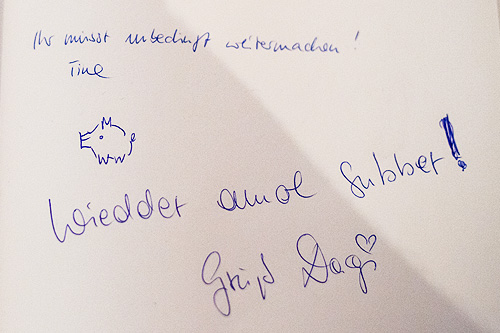 Ihr müsst unbedingt weitermachen!
Tine
M
E
WW
Wiedder amol subber!
Gruß Dagi